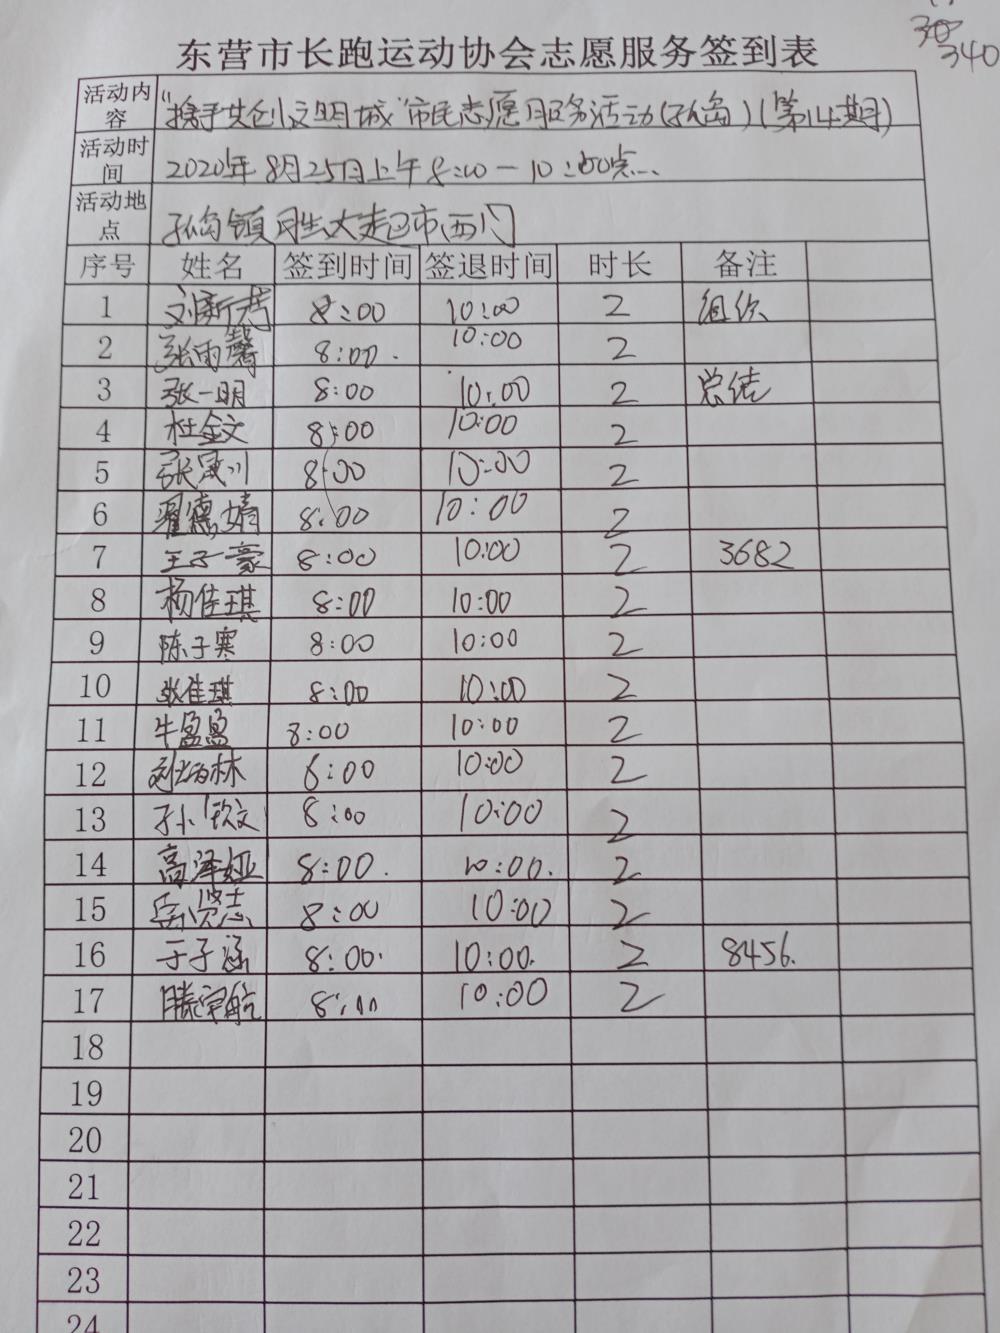 340
东营市长跑运动协会志愿服务签到表
活动内容 "携手共创文明城"市民志愿服务活动(孤岛)(第14期)
活动时间 2020年8月25日上午8:00—10:00点
活动地点 孤岛镇胜大超市西门
序号 姓名 签到时间 签退时间 时长 备注
1 刘新 8:00 10:00 2 组织
2 张雨馨 8:00 10:00 2
3 张一明 8:00 10:00 2 总结
4 杜金文 8:00 10:00 2
5 张 川 8:00 10:00 2
6 翟德婧 8:00 10:00 2
7 王子豪 8:00 10:00 2 3682
8 杨佳琪 8:00 10:00 2
9 陈子寒 8:00 10:00 2
10 张佳琪 8:00 10:00 2
11 牛盈盈 8:00 10:00 2
12 林 8:00 10:00 2
13 孙钦文 8:00 10:00 2
14 高泽娅 8:00. 10:00. 2
15 岳贤志 8:00 10:00 2
16 于子涵 8:00. 10:00. 2 8456.
17 滕宇航 8:00 10:00 2
18
19
20
21
22
23
24